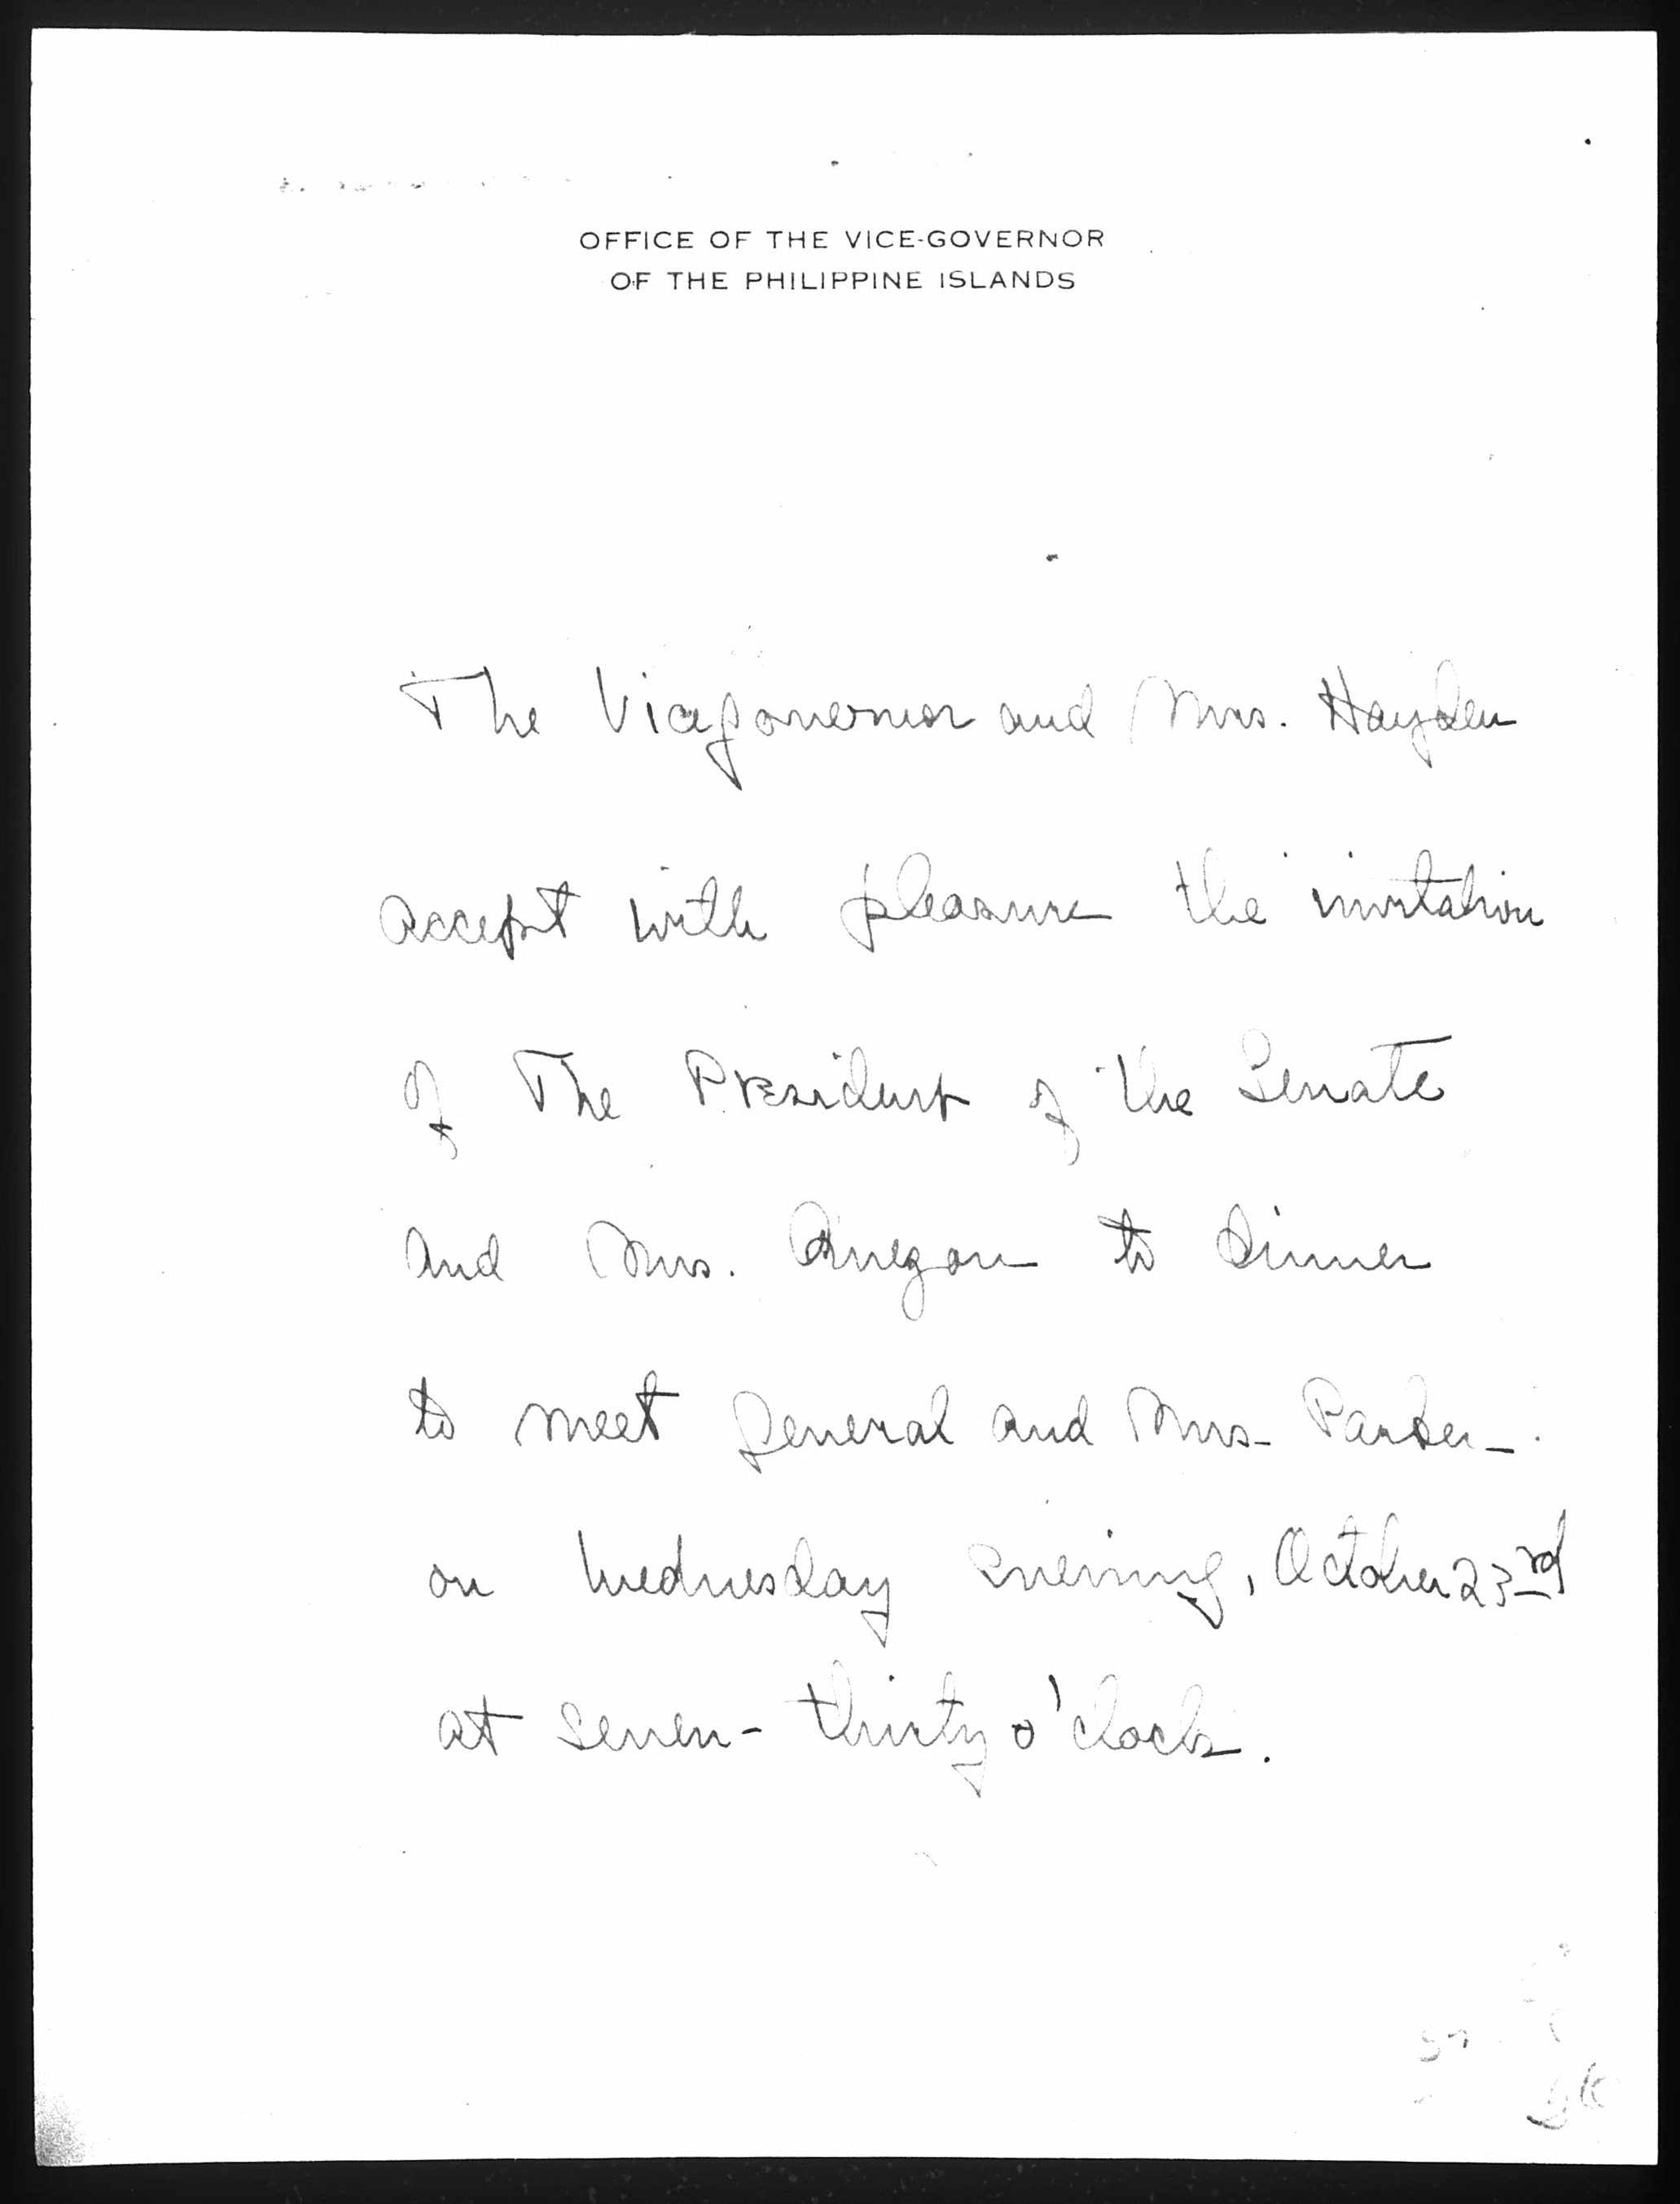 OFFICE OF THE VICE-GOVERNOR
OF THE PHILIPPINE ISLANDS
The Vicegovernor and Mrs. Hayden
accept with pleasure the invitation
of The President of the Senate
and Mrs. Quezon to dinner
to meet General and Mrs. Parker
on Wednesday evening, October 23rd
at seven-thirty o'clock.